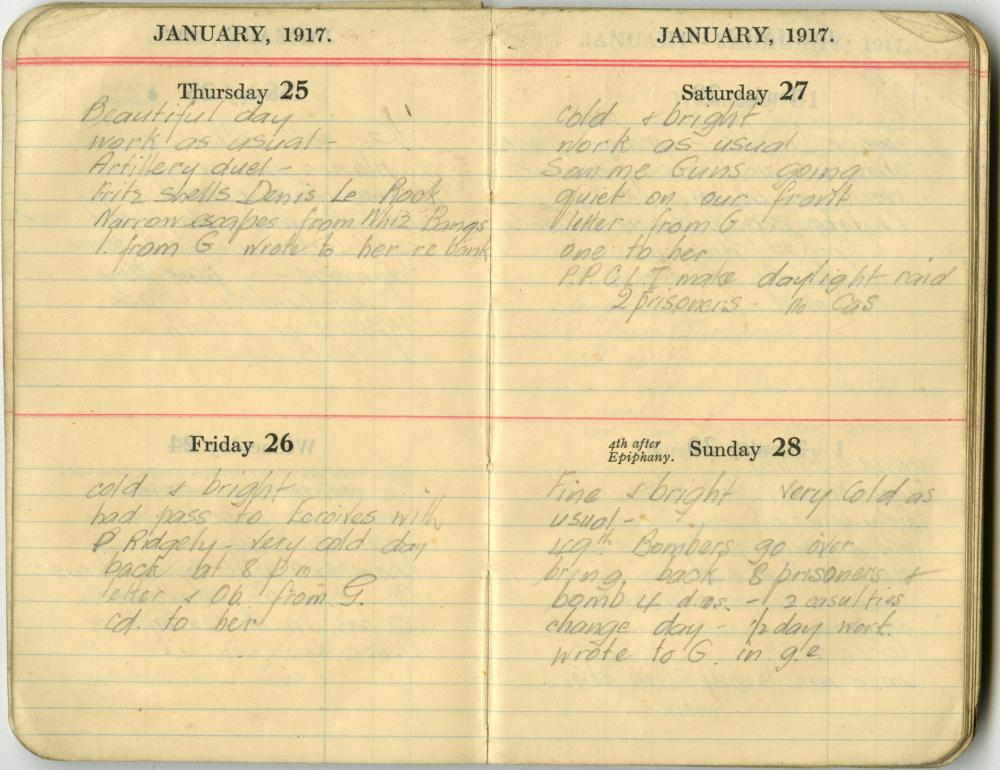 JANUARY, 1917.
Thursday 25
Beautiful day
work as usual -
Artillery duel -
Fritz shells Denis Le Rock
Narrow escapes from Whiz Bangs
l. from G wrote to her re bank
Friday 26
cold & bright
had pass to Ecoives with
P Ridgely - very cold day
back at 8 p m
letter & Ob. from G.
cd. to her
JANUARY, 1917.
Saturday 27
Cold & bright
work as usual
Somme Guns going
quiet on our front
letter from G
one to her
P.P.C.L.I make daylight raid
2 prisoners - no Cas
4th after
Epiphany. Sunday 28
Fine & bright very Cold as
usual -
49th Bombers go over
bring back 8 prisoners &
bomb 4 d.os. - 2 casulties
change day - 1/2 day work.
wrote to G. in g.e.